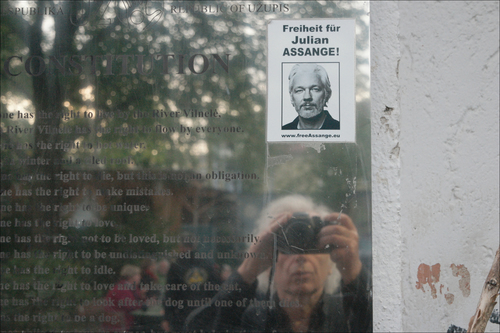 REPUBLIC OF UZUPIS
CONSTITUTION
Freiheit für
Julian
ASSANGE!
www.freeAssange.eu
ne has the right to live by the River Vilnelė,
River Vilnelė has the right to flow by everyone.
the right to
the right to die, but this is an obligation.
ne has the right to make mistakes.
ne has the right to be unique.
ne has the right to love.
ne has the right not to be loved, but not necessarily
ne has the right to be undistinguished and unknown.
ne has the right to idle.
ne has the right to love and take care of the cat.
ne has the right to look after the dog until one of them
the right to be a dog.